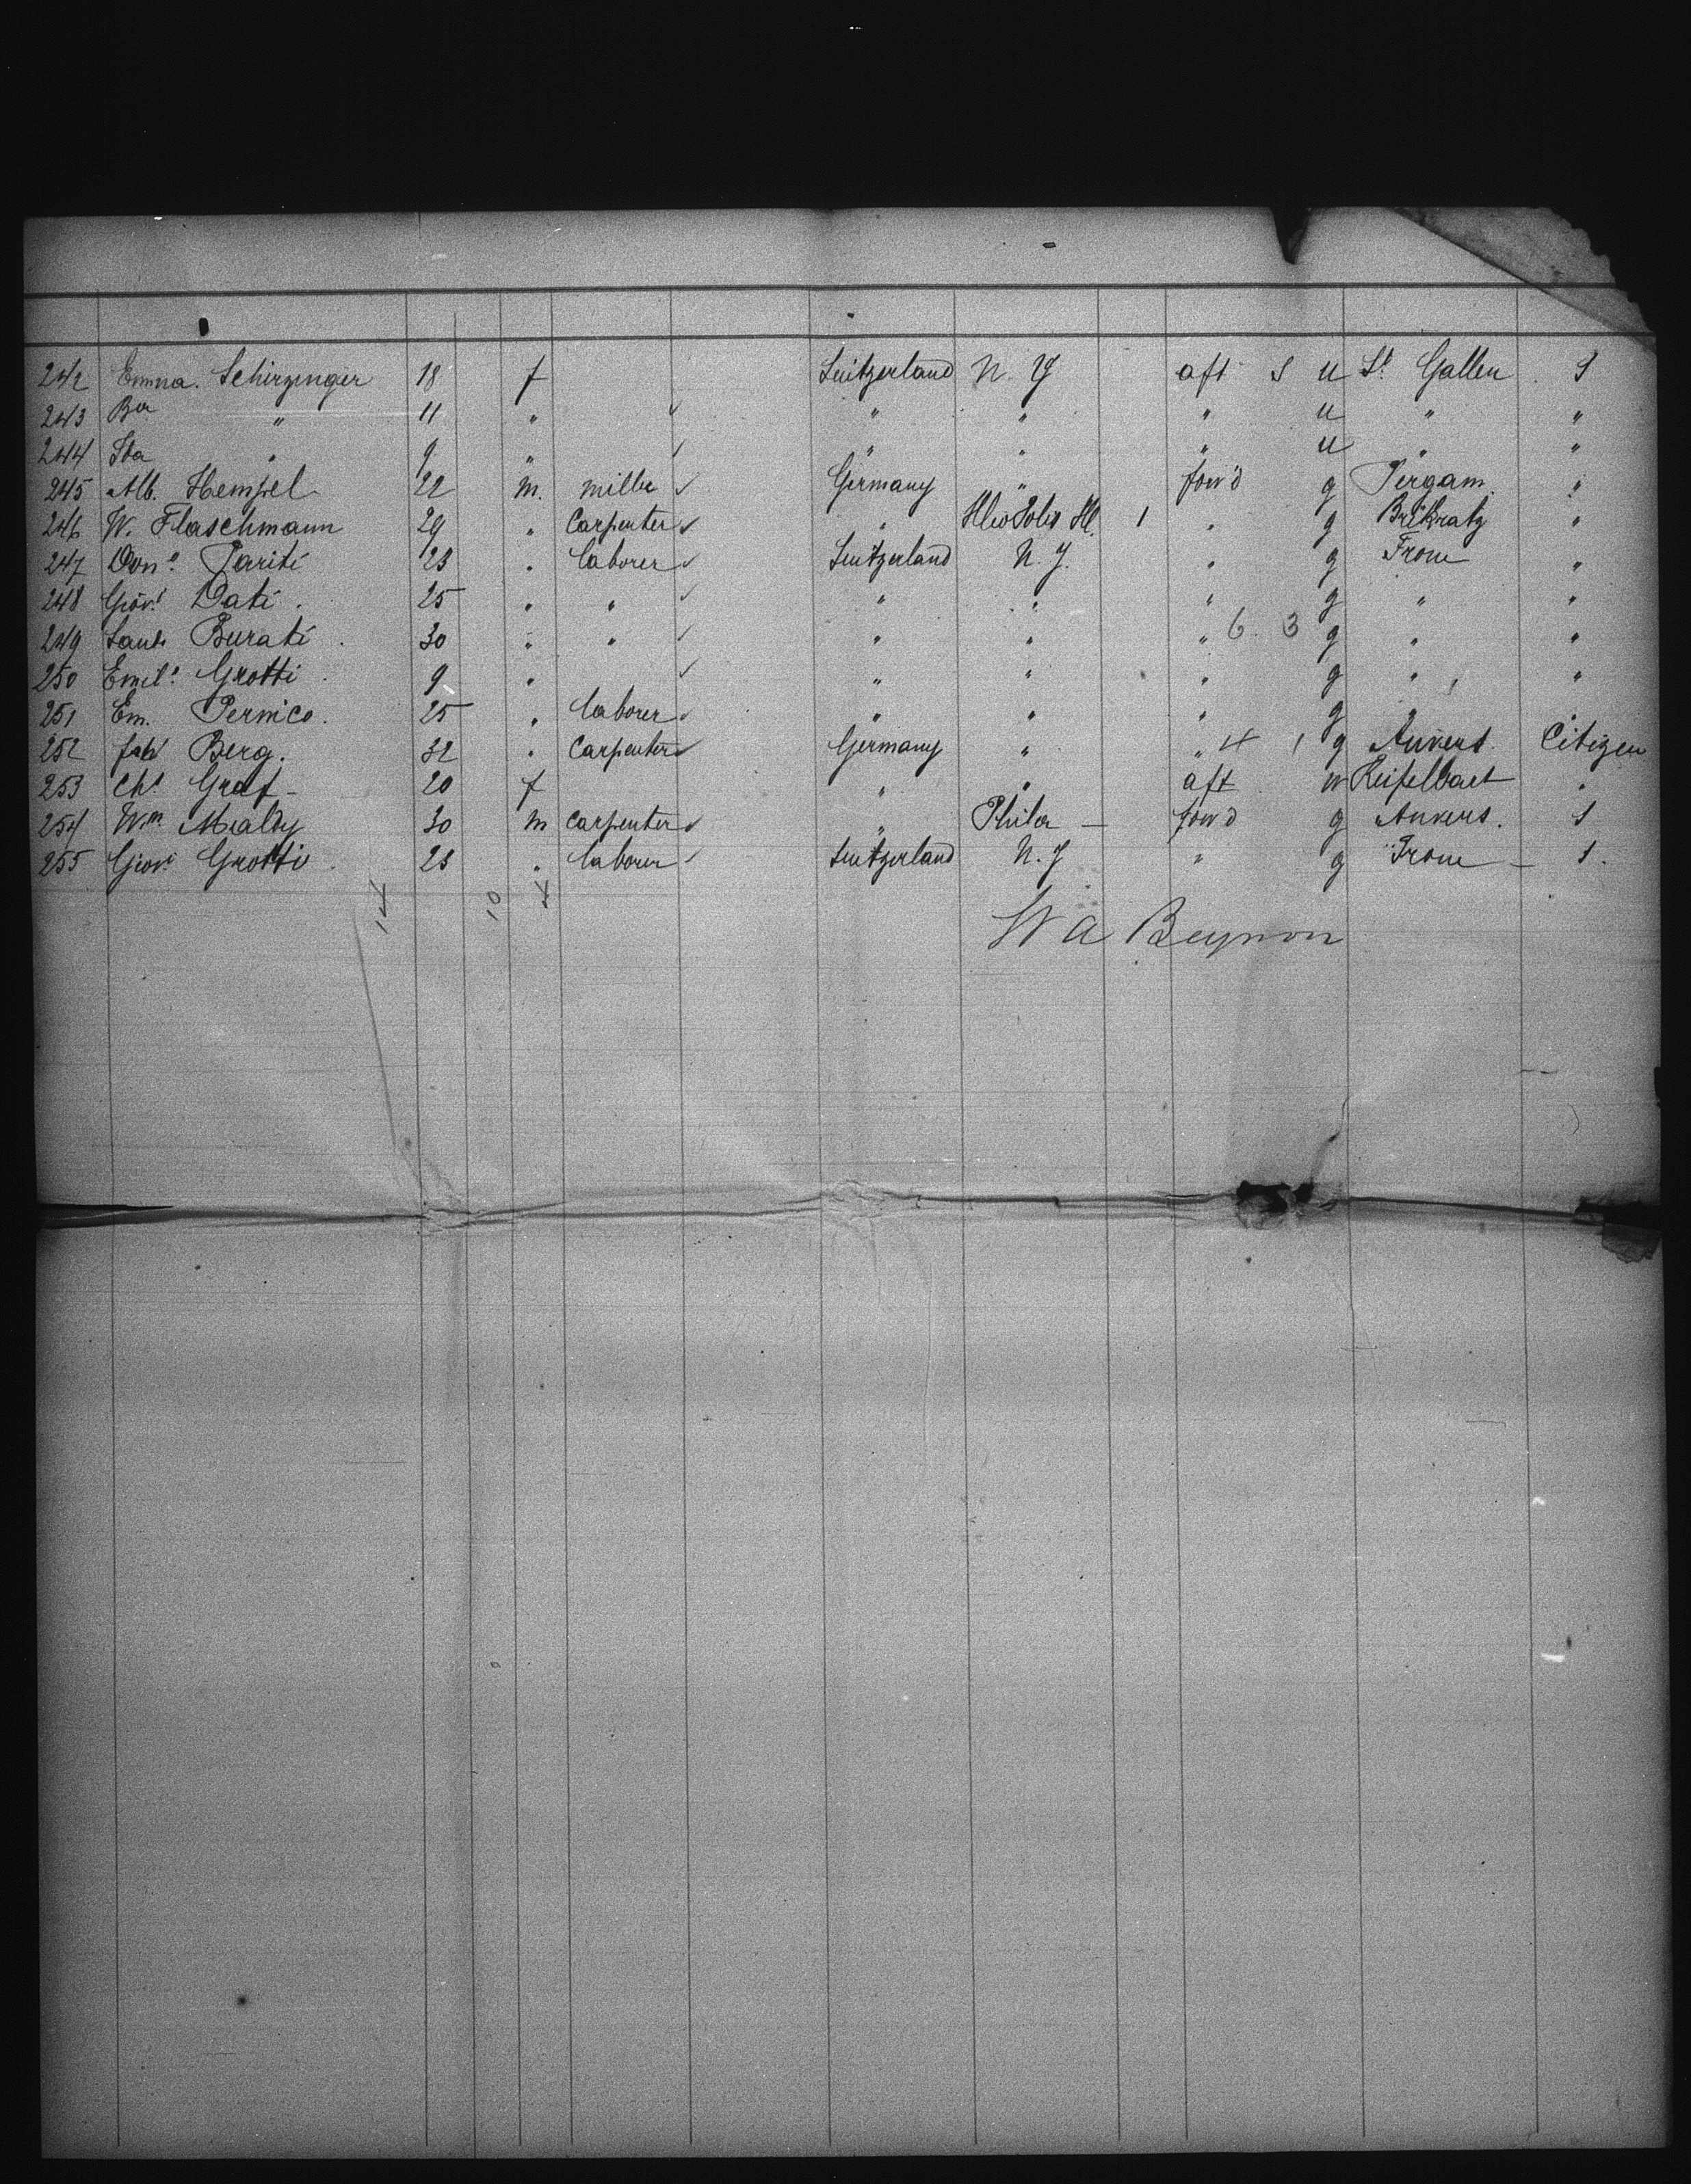 242 Emma. Schirzinger 18 f Suitzerland N. Y aft S u St Gallen . S
243 " 11 " " " " u " "
244 Ida " 9 " " " " u " "
245 Alb. Hempel 22 m. miller Germany " fow'd g Pergam. "
246 W. Flaschmann 29 " Carpenter " 1 " g "
247 Parité 23 " laborer Suitzerland N. Y. " g Trom "
248 Giov. Dati . 25 " " " " " g " "
249 Burati . 30 " " " " " 6. 3 g " "
250 Emil. Grotti . 9 " " " " g " "
251 Em. Pernico. 25 " laborer " " " g "
252 Berg. 32 " Carpenter Germany " " 4 1 g Anvers. Citizen
253 Chs Graf - 20 f " " aft w "
254 Wm Mealdy 30 m Carpenter " Phila - fow'd g Anvers. S
255 Giov. Grotti . 23 " laborer Suitzerland N. Y " g Trom - S.
14 10 4
W A Beynon